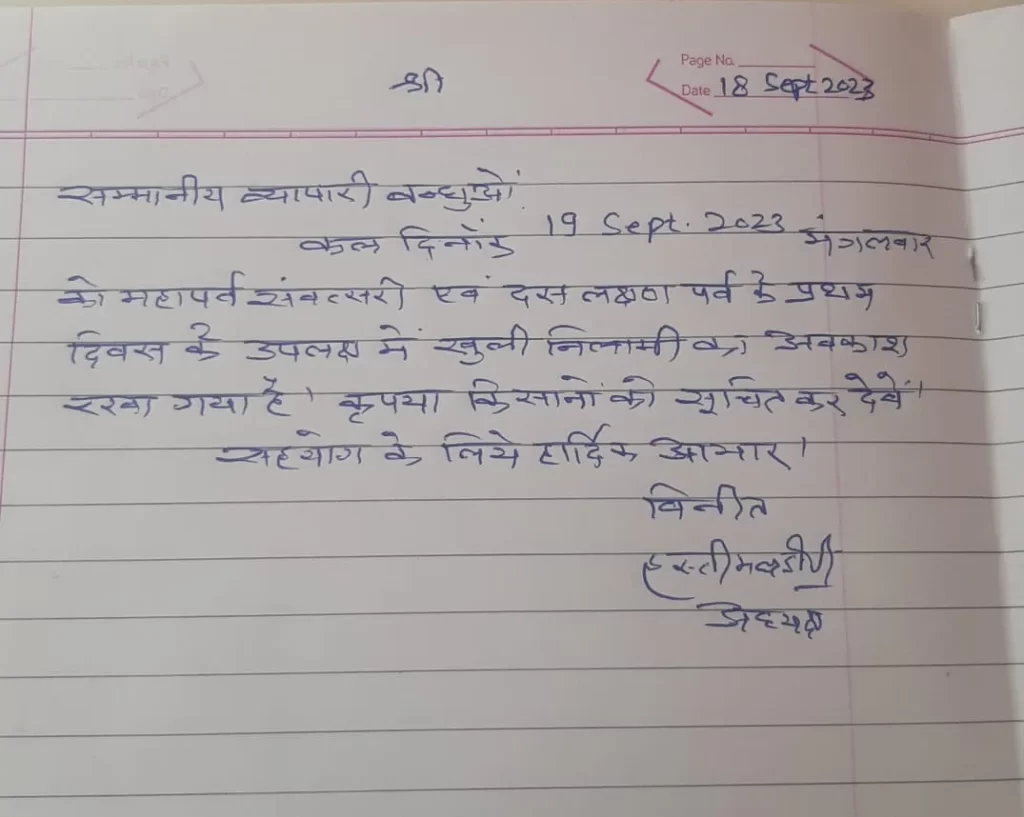 श्री
Page No.
Date 18 Sept 2023
सम्मानीय व्यापारी बन्धुओं
कल दिनांक 19 Sept. 2023 मंगलवार
को महापर्व संवत्सरी एवं दस लक्षण पर्व के प्रथम
दिवस के उपलक्ष में खुली निलामी का अवकाश
रखा गया है। कृपया किसानों को सूचित कर देवें।
सहयोग के लिये हार्दिक आभार।
विनीत
अध्यक्ष